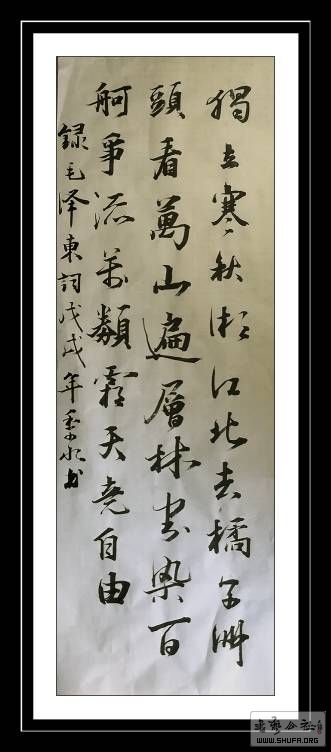 獨立寒秋湘江北去橘子洲
頭看萬山遍層林尽染百
舸爭流万類霜天竞自由
録毛泽東詞戊戌年水书
书艺公社
WWW.SHUFA.ORG